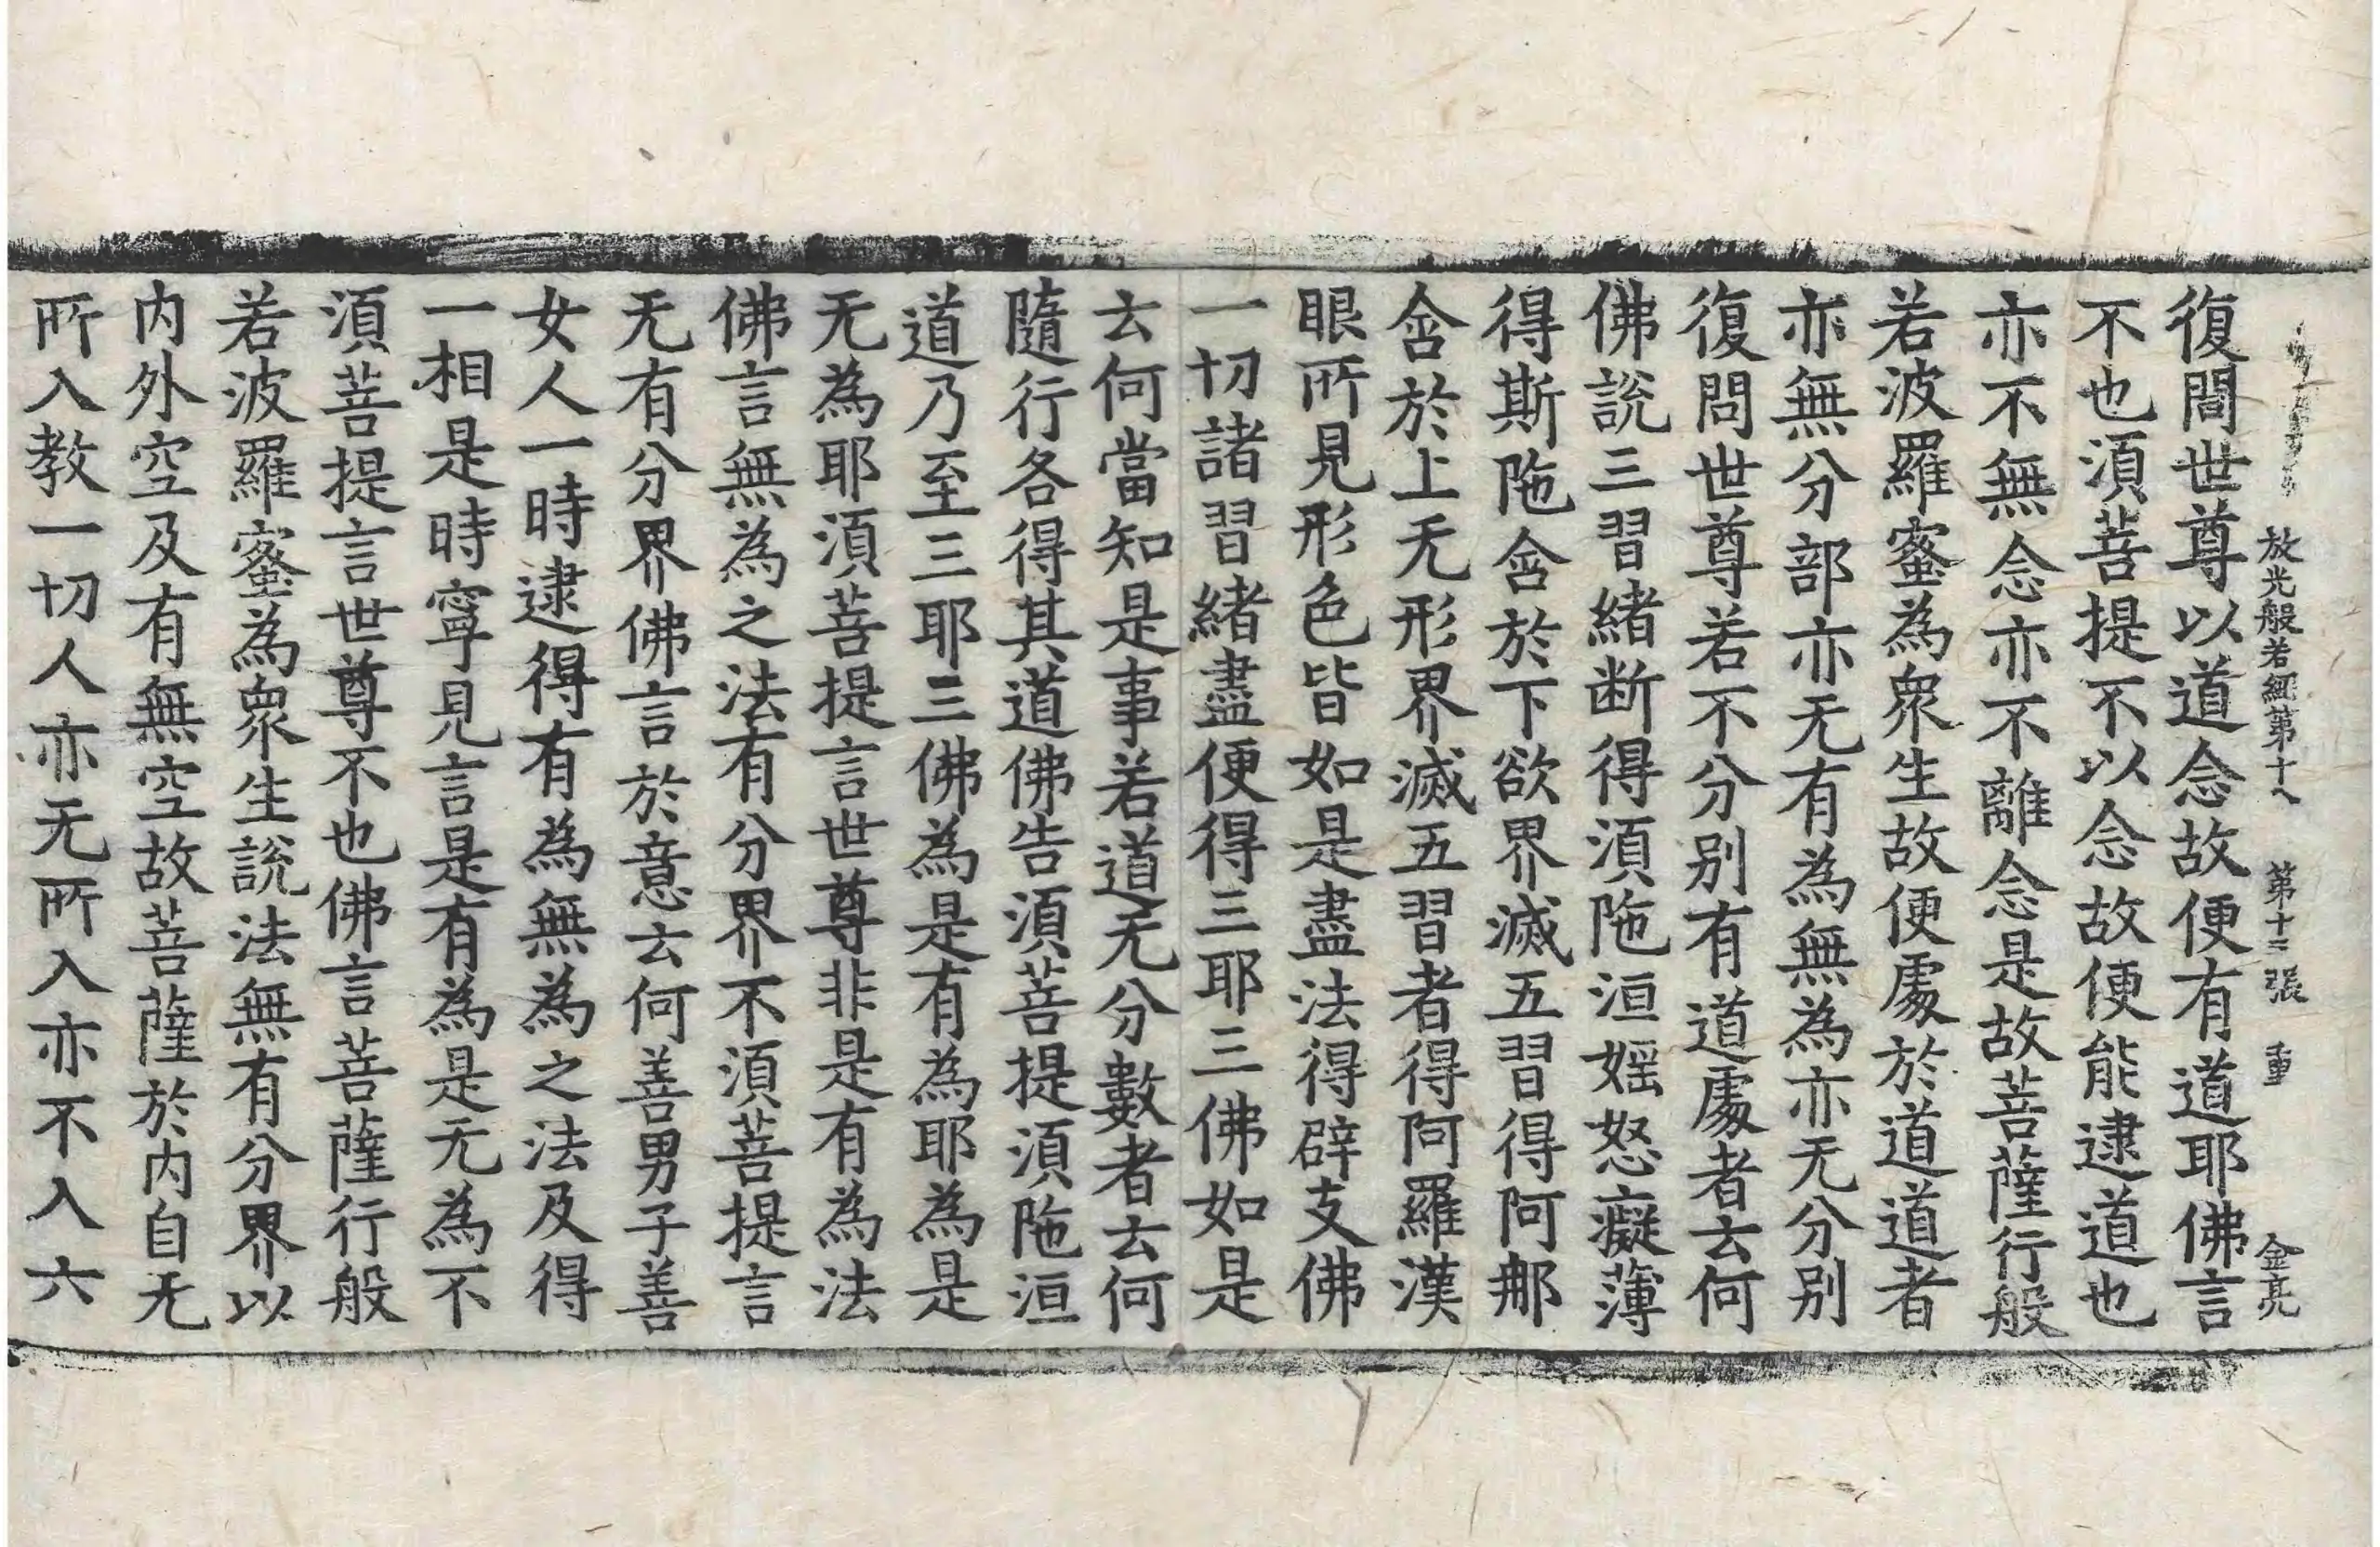 放光般若經第十八 第十三張 重 金亮
復問世尊以道念故便有道耶佛言
不也須菩提不以念故便能逮道也
亦不無念亦不離念是故菩薩行般
若波羅蜜為衆生故便處於道道者
亦無分部亦无有為無為亦无分別
復問世尊若不分別有道處者云何
佛說三習緒断得須陁洹婬怒癡薄
得斯陁含於下欲界滅五習得阿那
含於上无形界滅五習者得阿羅漢
眼所見形色皆如是盡法得辟支佛
一切諸習緒盡便得三耶三佛如是
云何當知是事若道无分數者云何
隨行各得其道佛告須菩提須陁洹
道乃至三耶三佛為是有為耶為是
无為耶須菩提言世尊非是有為法
佛言無為之法有分界不須菩提言
无有分界佛言於意云何善男子善
女人一時逮得有為無為之法及得
一相是時寧見言是有為是无為不
須菩提言世尊不也佛言菩薩行般
若波羅蜜為衆生說法無有分界以
内外空及有無空故菩薩於内自无
所入教一切人亦无所入亦不入六